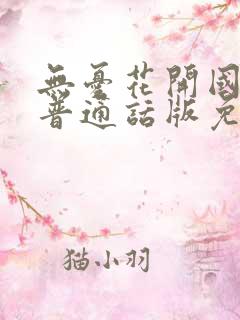 無憂花開國
普通話版免
猫小羽